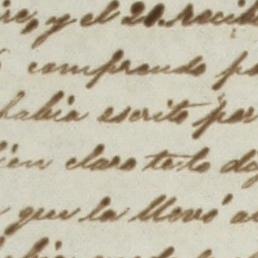 , y el 20. recib
comprendo p
habia escrito por
bien claro te lo dig
que la llevó a